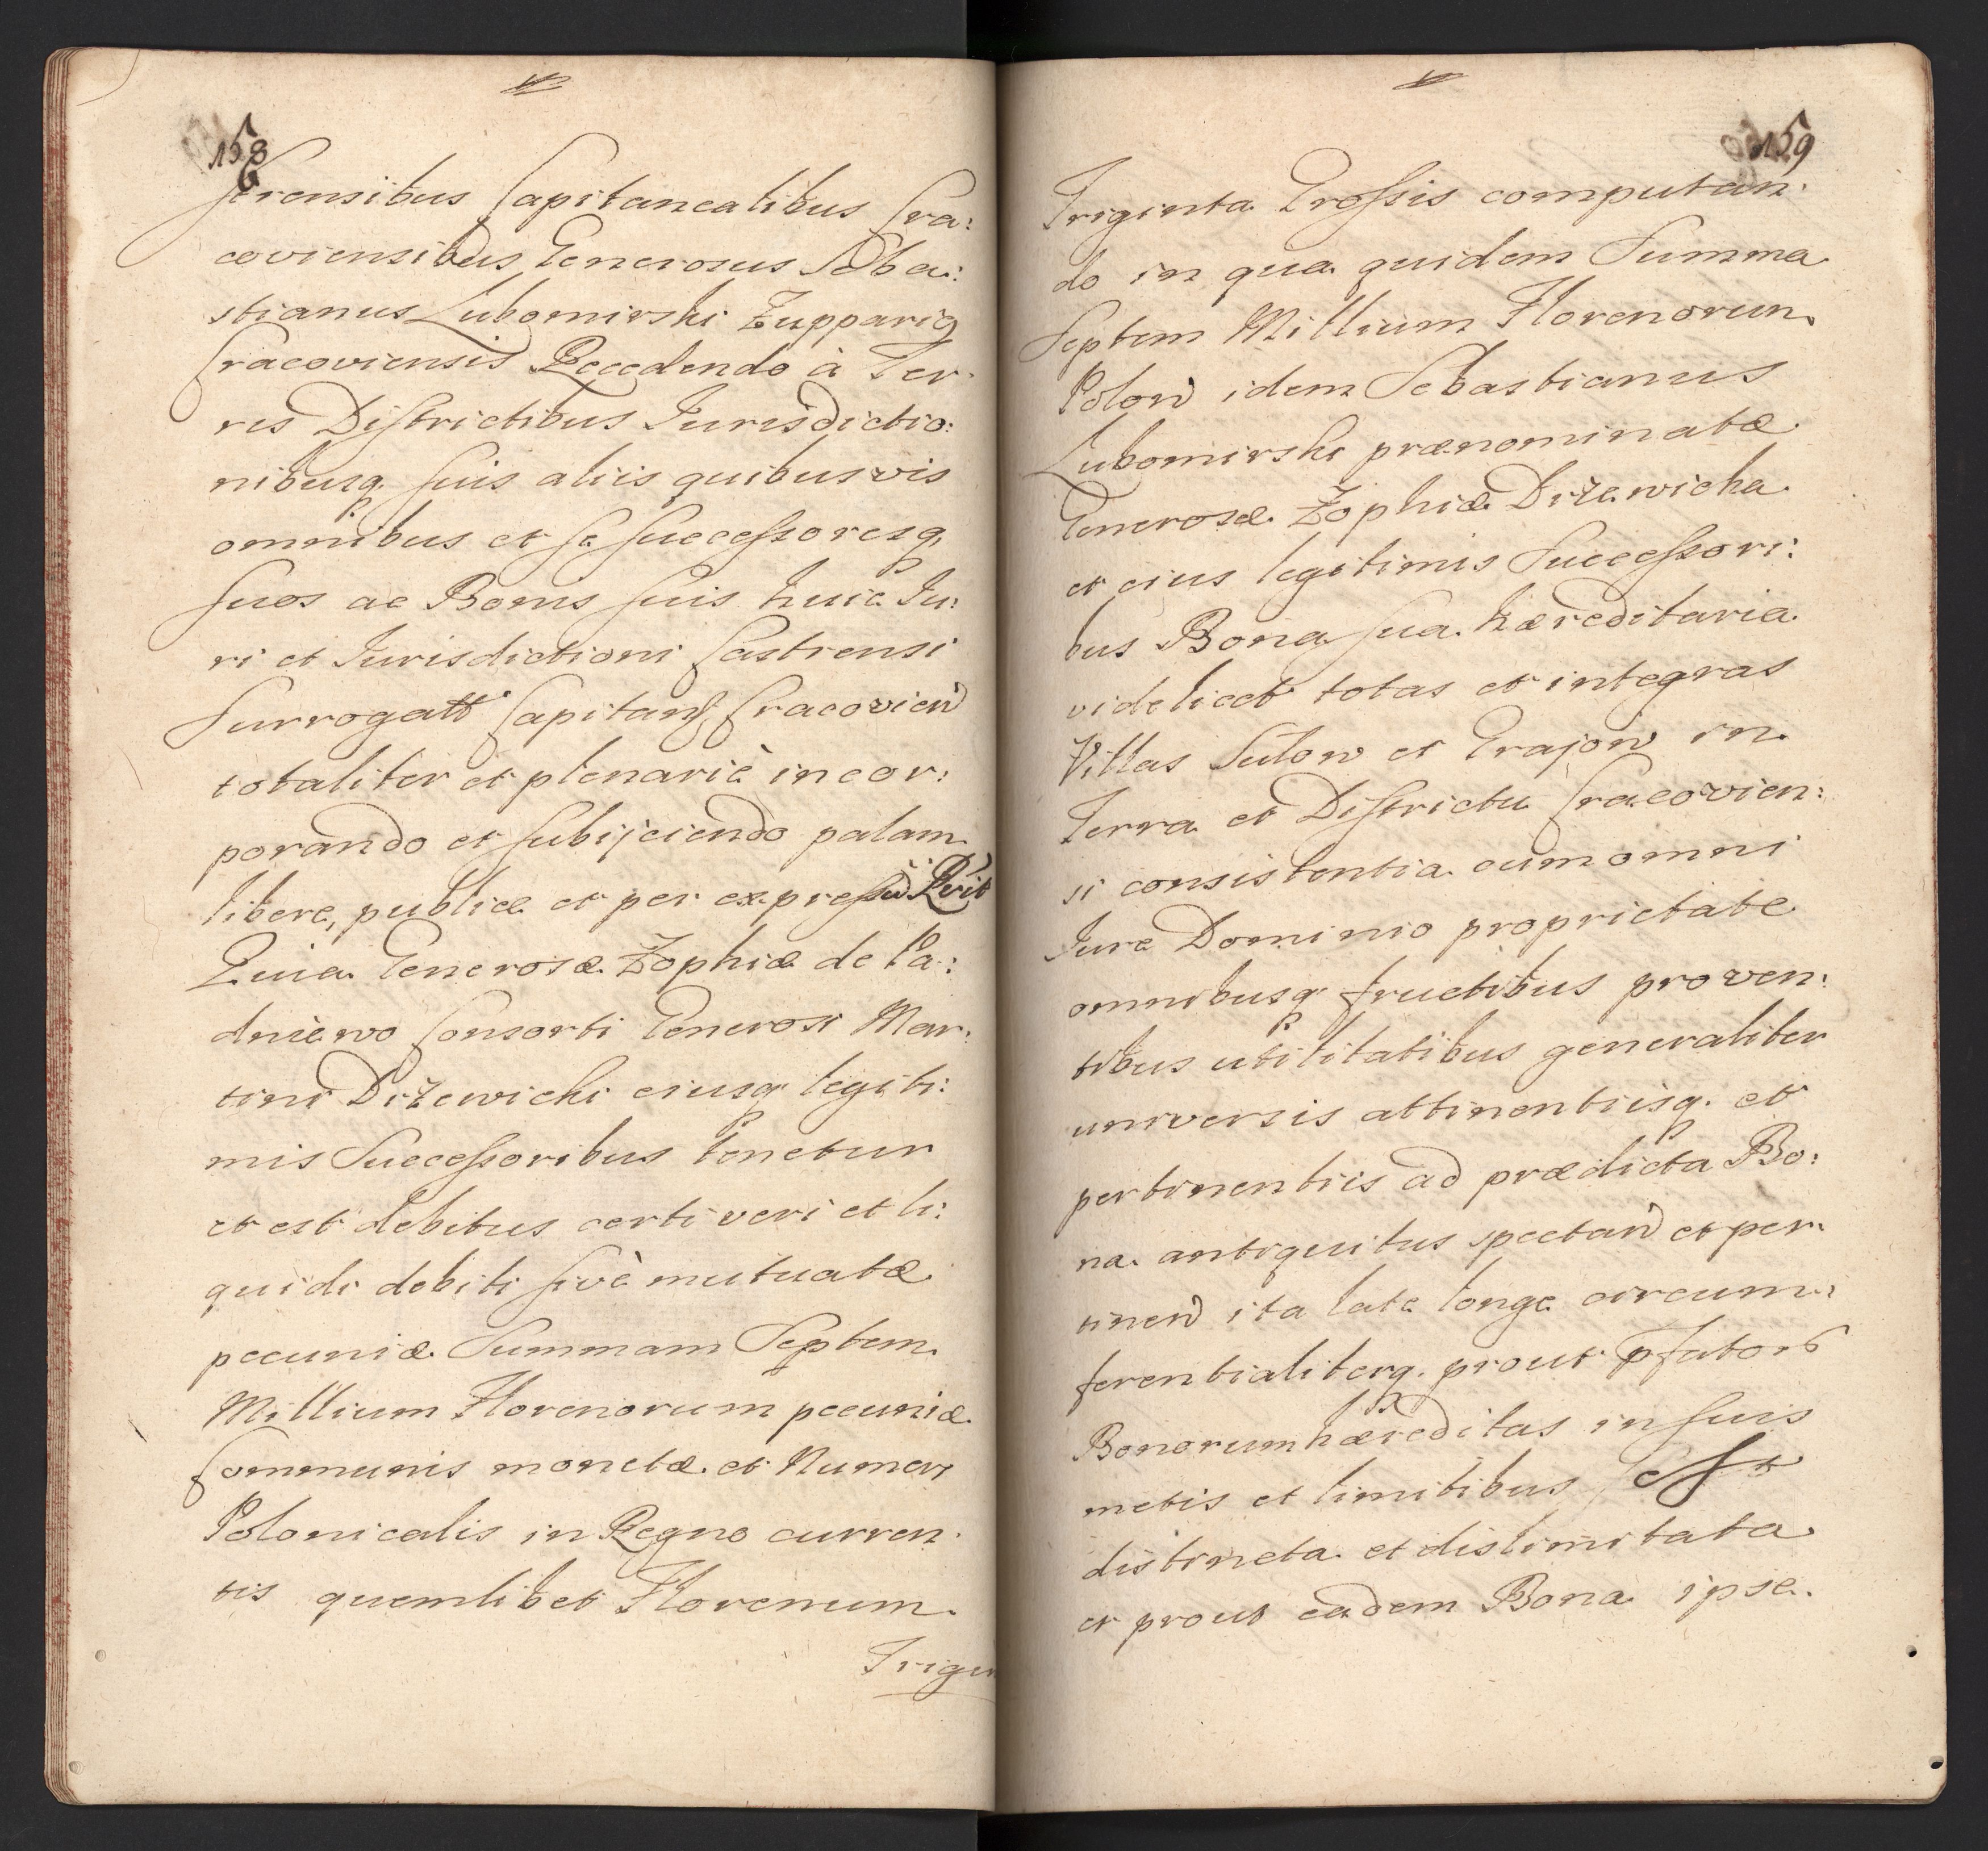 158
strensibus Capitanealibus Cra:
coviensibus Generosus Seba:
stianus Lubomirski Zupparig
Cracoviensis Recedendo à Ter
ris Districtibus Iurisdictio:
nibusq. suis aliis quibusvis
omnibus et se successoresq.
suos ac Bonis suis huic Iu:
ri et Iurisdictioni Castrensi
Surrogatt Capitan Cracovien
totaliter et plenariè incor:
porando et subijciendo palam
libere, publice et per expressũ
Quia Generosæ Zophiæ de Pa:
dniewo Consorti Generosi Mar:
tini Drzewicki eiusq. legiti:
mis Successoribus tenetur
et est debitus certi veri et li:
quidi debiti sivè mutuatæ
pecuniæ Summam Septem
Millium Florenorum pecuniæ
Communis monetæ et Numeri
Polonicalis in Regno curren
tis quemlibet Florenum
Trigin
159
Triginta Grossis computan:
do in qua quidem Summa
Septem Millium Florenorum
Polon idem Sebastianus
Lubomirski prænominatæ
Generosæ Zophiæ Drzewicka
et eius legitimis Successori:
bus Bona sua hæreditaria
videlicet totas et integras
Villas Sulow et Grajow in
Terra et Districtu Cracovien:
si consistentia cum omni
Iure Dominio proprietate
omnibusq. fructibus proven:
tibus utilitatibus generaliter
universis attinentiisq. et
pertinentiis ad prædicta Bo:
na antiquitus spectan et per
tinen ita late longe circum:
ferentialiterq. prout pfator
Bonorum hæreditas in suis
metis et limitibus est
distincta et dislimitata
et prout eadem Bona ipse